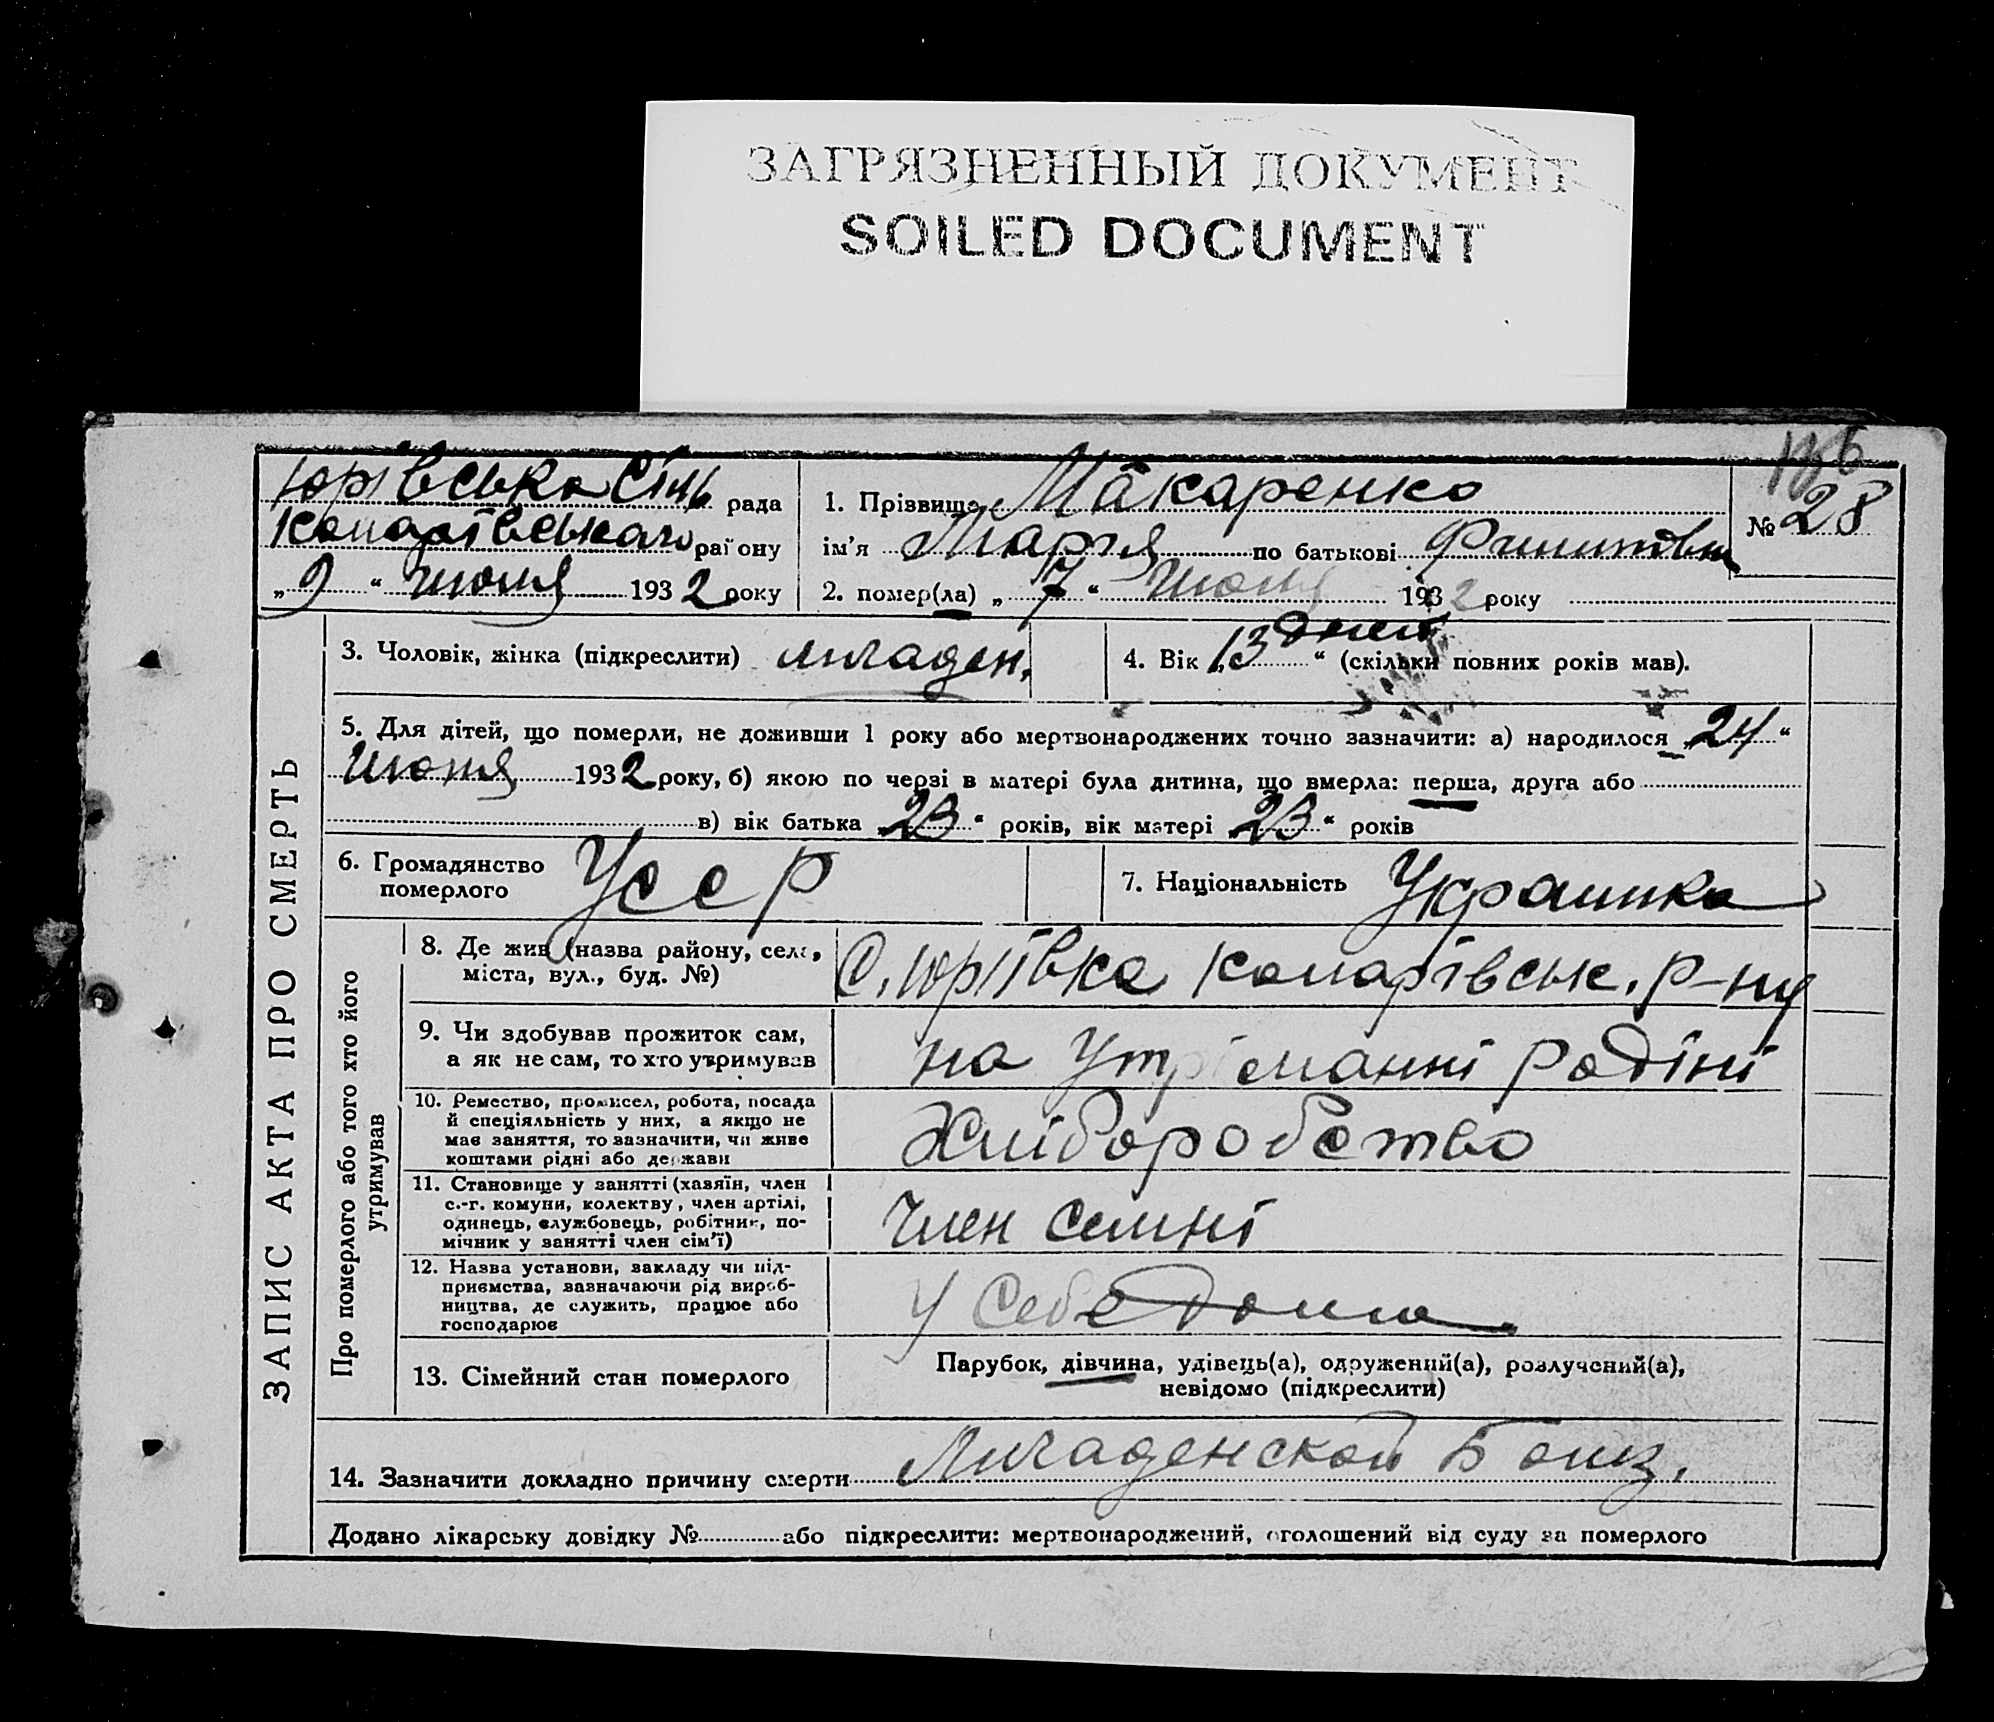 ЗАГРЯЗНЕННЫЙ ДОКУМЕНТ
SOILED DOCUMENT
Юрівська Сіль рада
Комарівського району
„ 9 “ Июля 1932 року
1. Прізвище Макаренко
ім’я Мария по батькові Филиповна
2. помер(ла) „ 7 “ Июля 1932 року
№ 28
ЗАПИС АКТА ПРО СМЕРТЬ
3. Чоловік, жінка (підкреслити) младен.
4. Вік „13 дней “ (скільки повних років мав).
5. Для дітей, що померли, не доживши 1 року або мертвонароджених точно зазначити: а) народилося „24“
Июня 1932 року, б) якою по черзі в матері була дитина, що вмерла: перша, друга або
в) вік батька „23“ років, вік матері „23“ років
6. Громадянство
померлого
Усср
7. Національність Украинка
Про померлого або того хто його
утримував
8. Де жив (назва району, села,
міста, вул., буд. №)
С. Юрівка Комарівськ. р-ну
9. Чи здобував прожиток сам,
а як не сам, то хто утримував
на утріманні родіні
10. Ремество, промисел, робота, посада
й спеціяльність у них, а якщо не
має заняття, то зазначити, чи живе
коштами рідні або держави
Хліборобство
11. Становище у занятті (хазяїн, член
с.-г. комуни, колектву, член артілі,
одинець, службовець, робітник, по-
мічник у занятті член сім’ї)
Член семні
12. Назва установи, закладу чи під-
приємства, зазначаючи рід вироб-
ництва, де служить, працює або
господарює
У себе дома
13. Сімейний стан померлого
Парубок, дівчина, удівець(а), одружений(а), розлучений(а),
невідомо (підкреслити)
14. Зазначити докладно причину смерти Младенской Болиз.
Додано лікарську довідку № або підкреслити: мертвонароджений, оголошений від суду за померлого